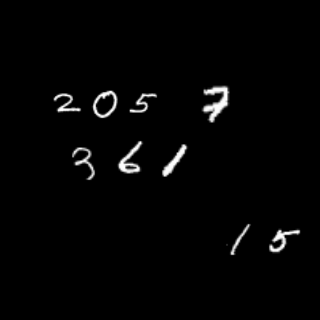 205 7
361
15